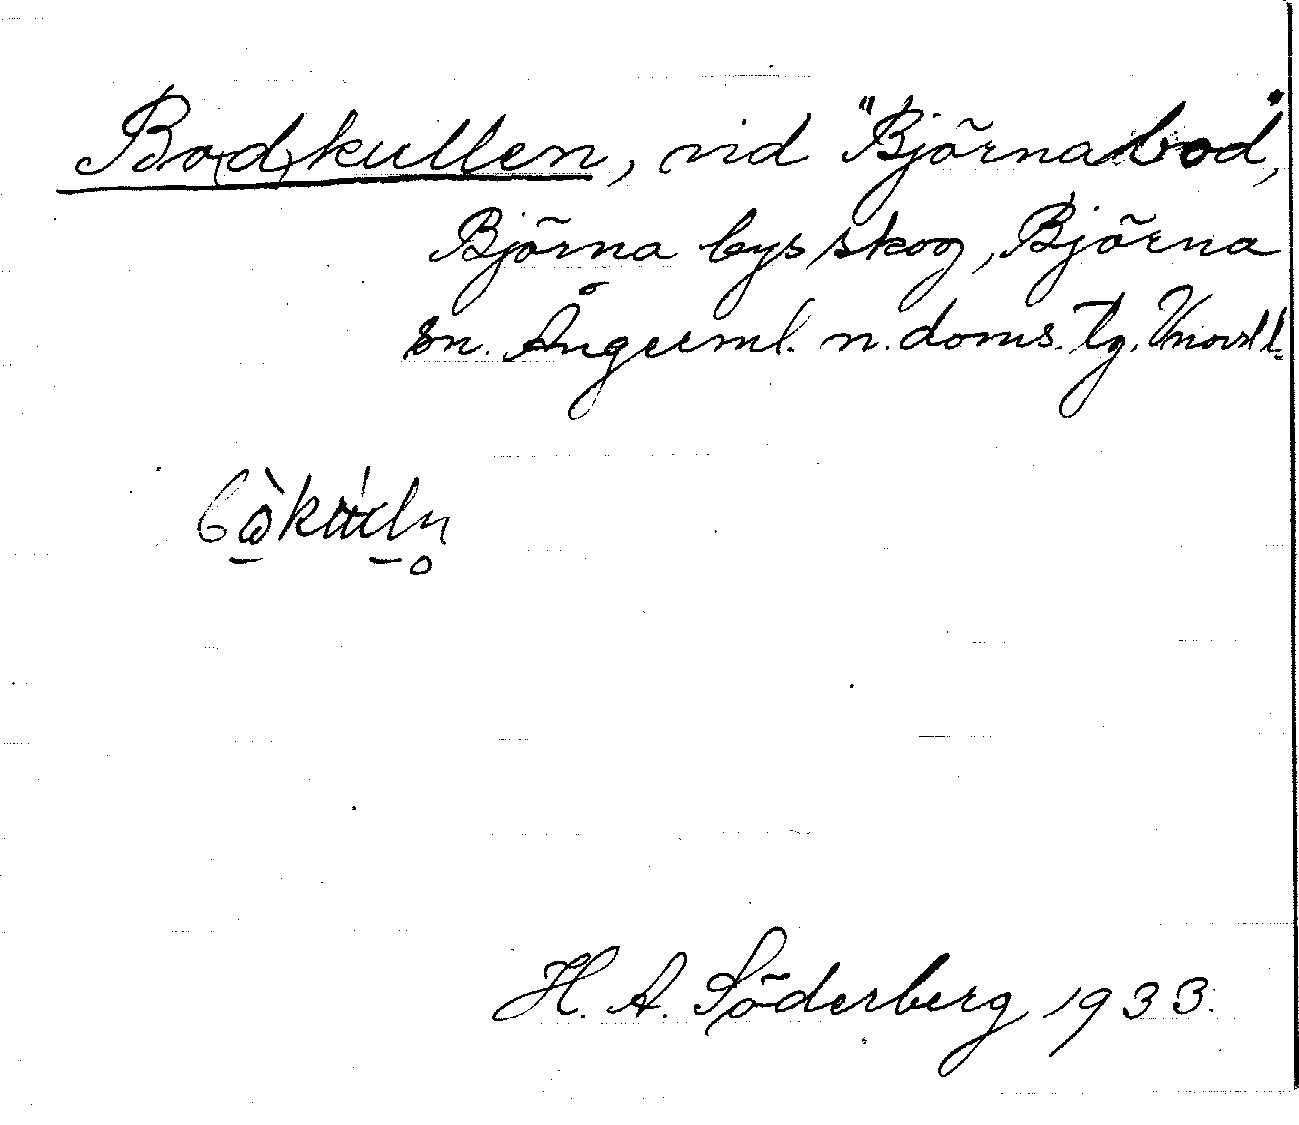 Bo(d)kullen, vid "Björnabod",
Björna bys skog, Björna
sn. Ångerml. n. doms. tg. Vnorrl l.
H. A. Söderberg 1933.